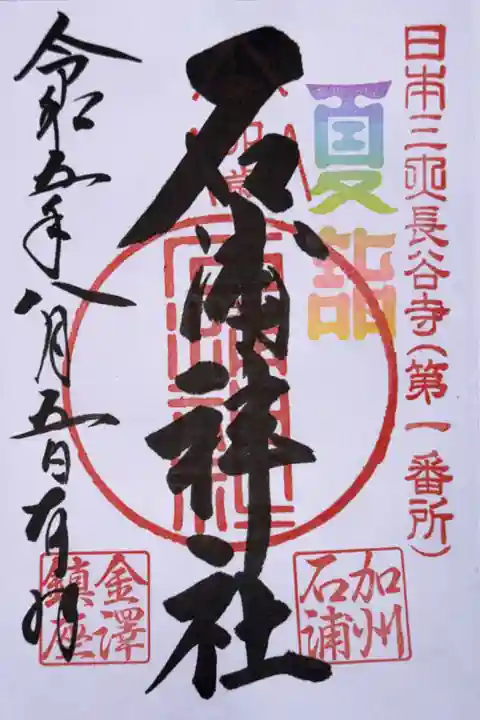 日本三所長谷寺(第一番所)
夏詣
石浦神社
加州
石浦
令和五年八月五日有丹
金澤
鎮座